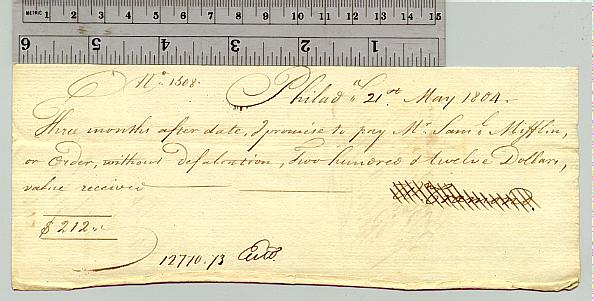 METRIC 1 2 3 4 5 6 7 8 9 10 11 12 13 14 15
6 5 4 3 2 1
No. 1508.
Philada. 21st. May 1804.
Three months after date, I promise to pay Mr. Saml. Mifflin,
or Order, without defalcation, Two hundred & twelve Dollars,
value received
$212..
12770.73